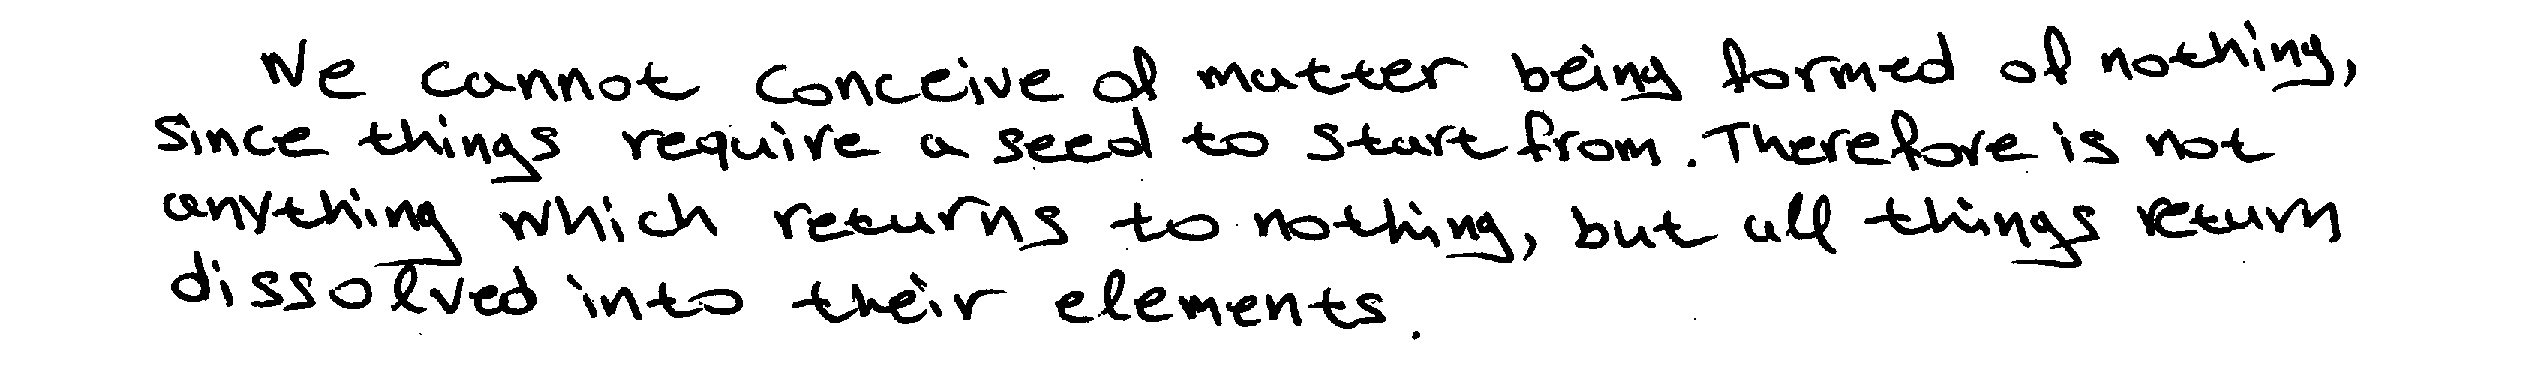 We cannot conceive of matter being formed of nothing,
since things require a seed to start from. Therefore is not
anything which returns to nothing, but all things return
dissolved into their elements.